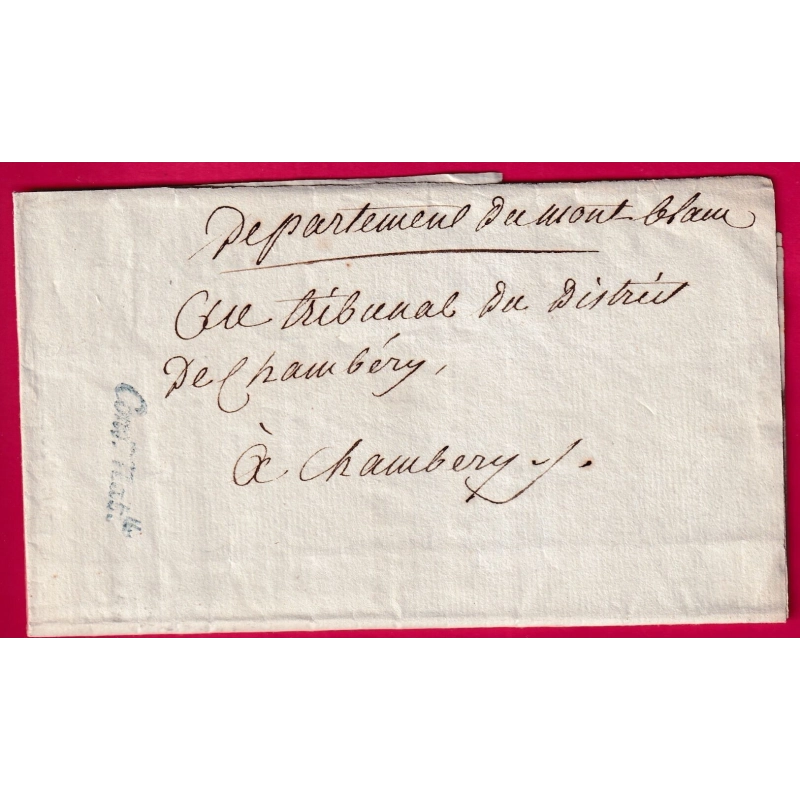 Departement du mont blanc
Au tribunal du District
De Chambéry,
à Chambery.
Conv. Nat.le